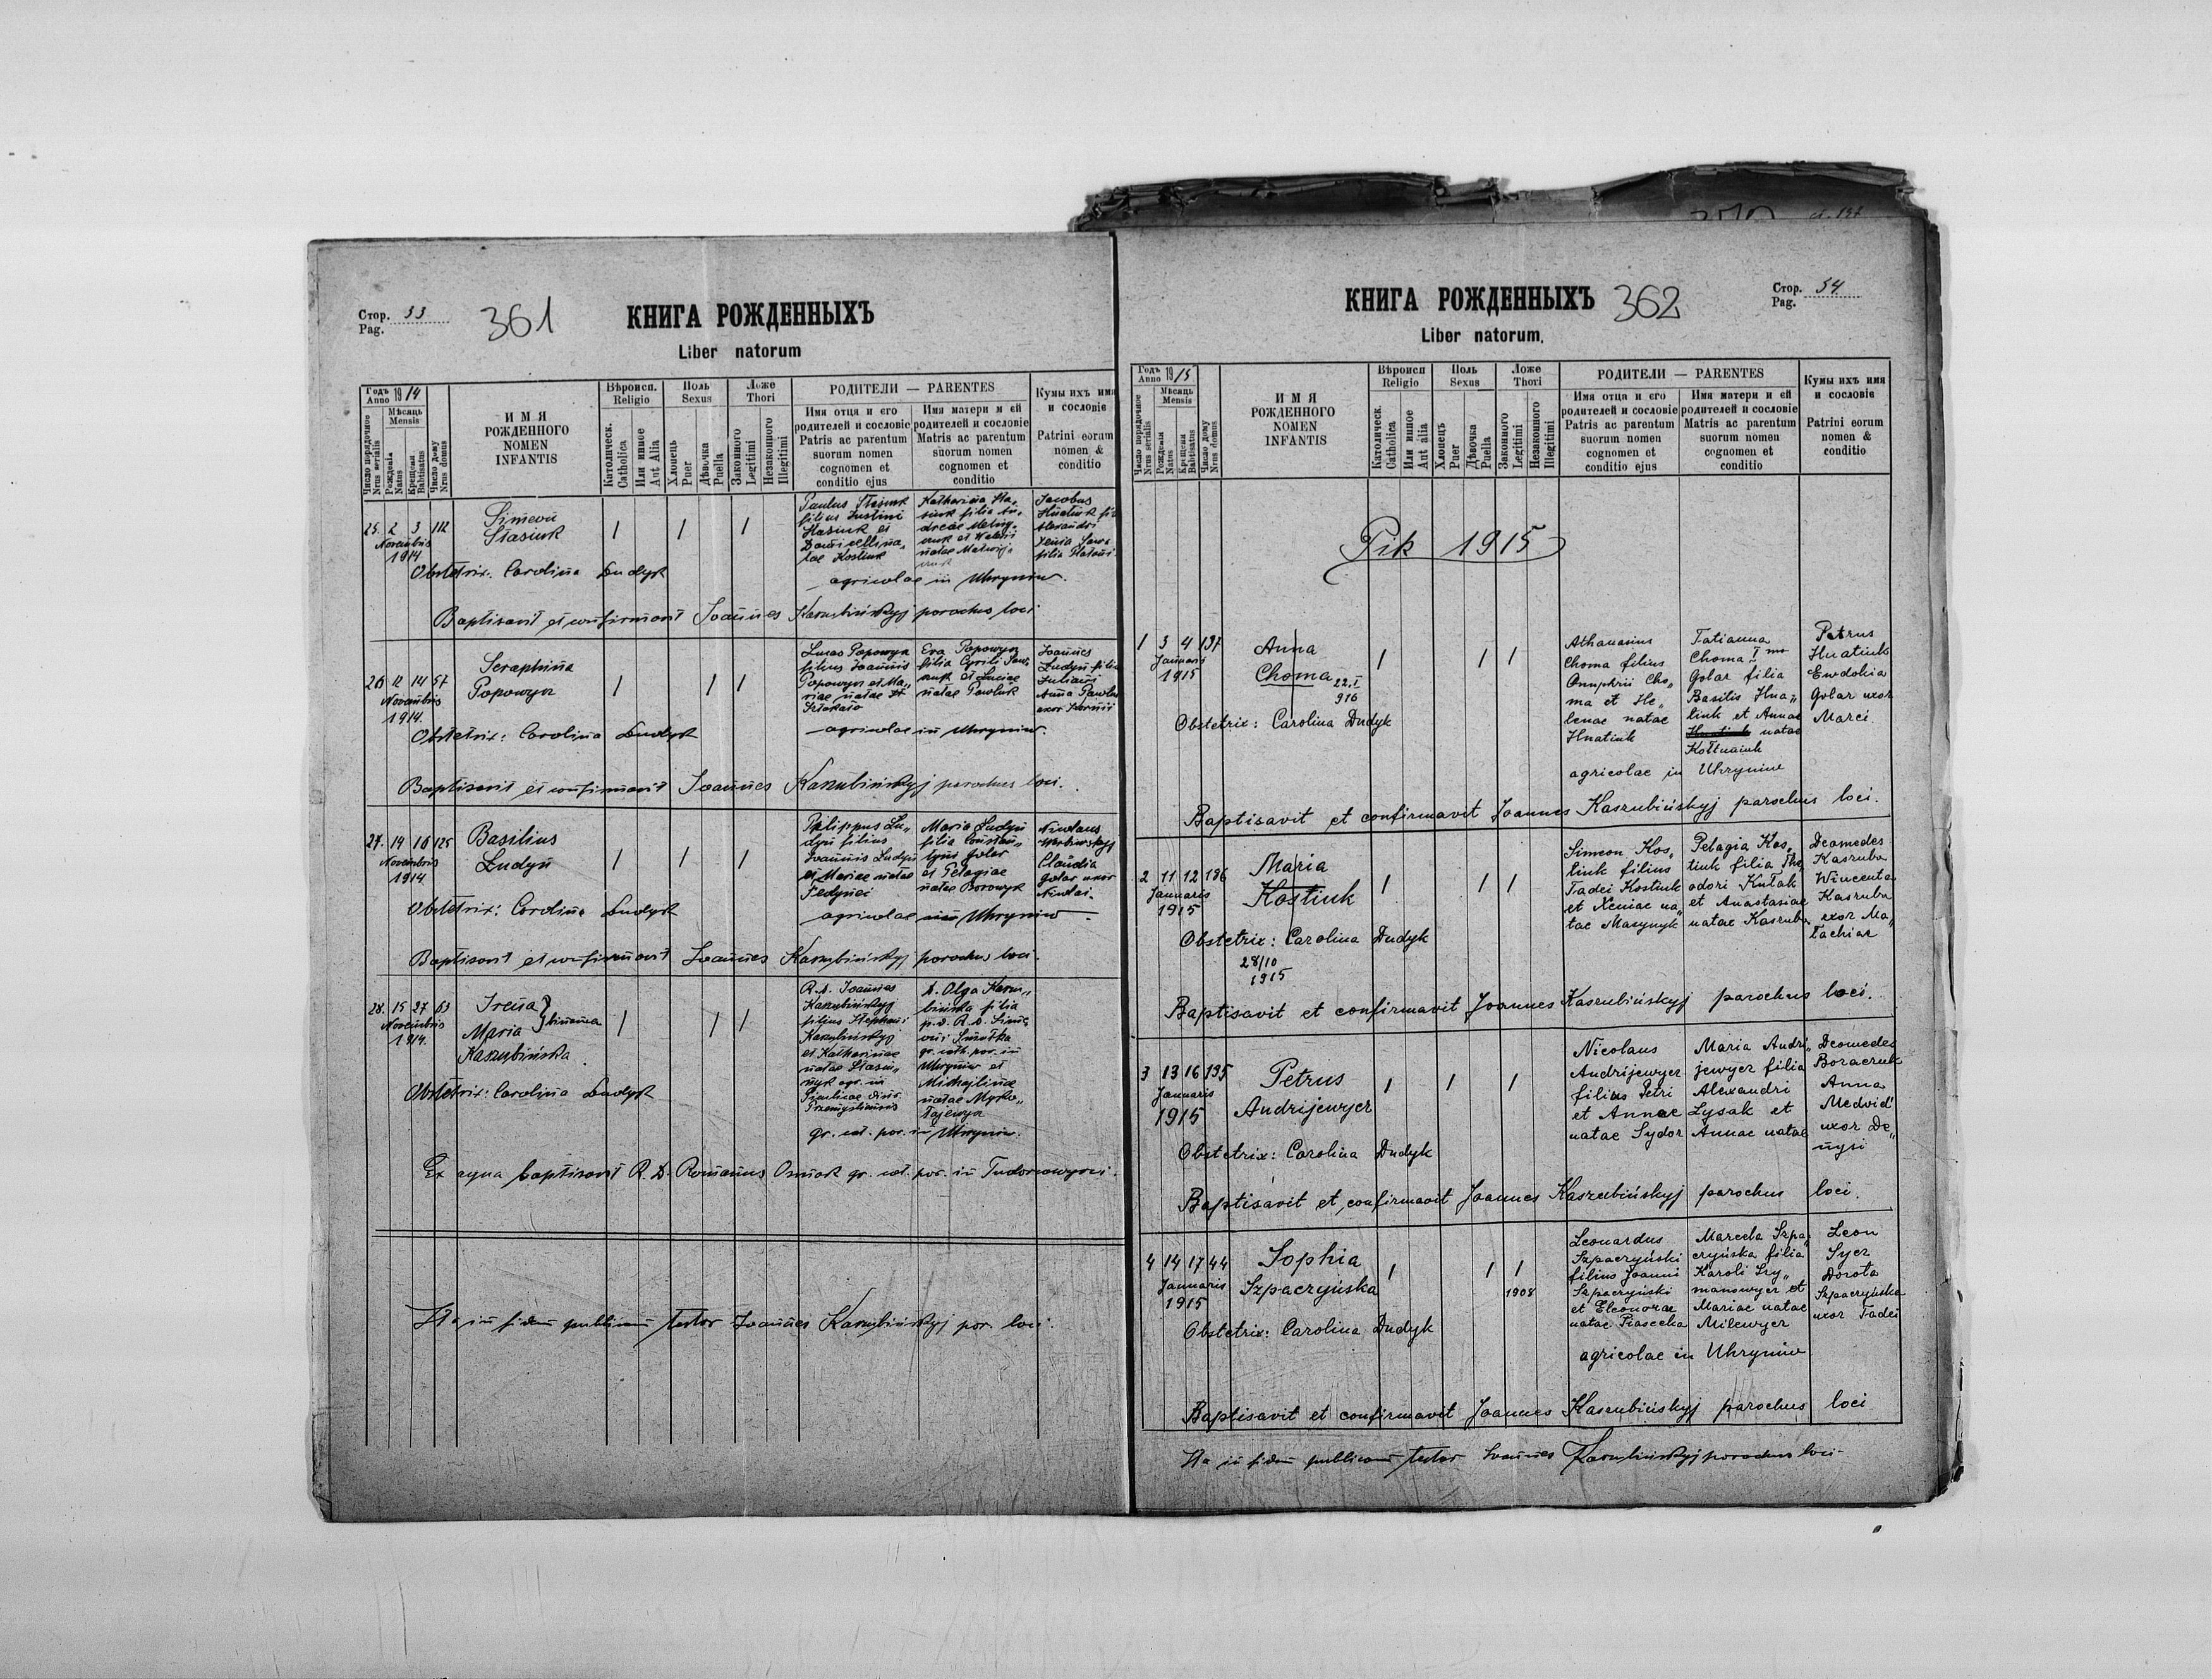 Стор. 33
Pag.
361
КНИГА РОЖДЕННЫХЪ
Liber natorum
Годъ Anno 1914
Мѣсяць Mensis
Число порядочное Nrus serialis
Рожденія Natus
Крещенія Babtisatus
Число дому Nrus domus
ИМЯ РОЖДЕННОГО NOMEN INFANTIS
Вѣроисп. Religio
Католическ. Catholica
Или инное Aut Alia
Полъ Sexus
Хлопецъ Puer
Дѣвочка Puella
Ложе Thori
Законного Legitimi
Незаконного Illegitimi
РОДИТЕЛИ — PARENTES
Имя отца и его родителей и сословіе Patris ac parentum suorum nomen cognomen et conditio ejus
Имя матери и ей родителей и сословіе Matris ac parentum suorum nomen cognomen et conditio
Кумы ихъ имя и сословіе Patrini eorum nomen & conditio
25. 2 3 112
Novembris
1914.
Simeon
Stasiuk
Paulus Stasiuk
filius Justini
Stasiuk et
natae Kostiuk
Katharina Sta„
siuk filia An„
dreae
Jacobus
Hnatiuk
Alexandri
Xenia
filia
Obstetrix: Carolina Dudyk
agricolae in Uhryniw.
Baptisavit et confirmavit Joannes Kaszubińskyj parochus loci
26 12 14 57
Novembris
1914.
Seraphina
Popowycz
Lucas Popowycz
filius Joannis
Popowycz et Ma„
riae natae
Eva Popowycz
filia Cyrili
et Luciae
natae Pawluk
Joannes
Ludyn filius
Juliani
Anna
uxor
Obstetrix: Carolina Dudyk
agricolae in Uhryniw.
Baptisavit et confirmavit Joannes Kaszubińskyj parochus loci.
27. 14 16 125
Novembris
1914.
Basilius
Ludyn
Philippus Lu„
dyn filius
Joannis Ludyn
et Mariae natae
Fedynei
Maria Ludyn
filia Constan„
tyni Golar
et Pelagiae
natae Borowyk
Nicolaus
Claudia
Golar uxor
Nicolai.
Obstetrix: Carolina Dudyk
agricolae in Uhryniw.
Baptisavit et confirmavit Joannes Kaszubińskyj parochus loci.
28. 15 27 63
Novembris
1914.
Irena
Maria } binomia
Kaszubińska.
R. D. Joannes
Kaszubińskyj
filius Stephani
Kaszubińskyj
et Katharinae
natae
agr. in
D. Olga Kaszu„
bińska filia
p. d. R. D. Sime„
onis
gr. cath. par. in
Uhryniw et
Michajlinae
natae
Obstetrix: Carolina Dudyk
gr. cat. par. in Uhryniw.
Ex aqua baptisavit R. D. Romanus gr. cat. par. in
Ita in fidem publicam testor Joannes Kaszubińskyj par. loci.
Стор. 34
Pag.
КНИГА РОЖДЕННЫХЪ 362
Liber natorum.
Годъ Anno 1915
Мѣсяць Mensis
Число порядочное Nrus serialis
Рожденія Natus
Крещенія Babtisatus
Число дому Nrus domus
ИМЯ РОЖДЕННОГО NOMEN INFANTIS
Вѣроисп Religio
Католическ. Catholica
Или инное Aut alia
Полъ Sexus
Хлопецъ Puer
Дѣвочка Puella
Ложе Thori
Законного Legitimi
Незаконного Illegitimi
РОДИТЕЛИ — PARENTES
Имя отца и его родителей и сословіе Patris ac parentum suorum nomen cognomen et conditio ejus
Имя матери и ей родителей и сословіе Matris ac parentum suorum nomen cognomen et conditio
Кумы ихъ имя и сословіе Patrini eorum nomen & conditio
Рік 1915
1 3 4 137
Januaris
1915
Anna
Choma
22.I
916
Athanasius
Choma filius
Onuphrii Cho„
ma et He„
lenae natae
Hnatiuk
Tatianna
Choma I mo
Golar filia
Basilis Hna„
tiuk et Annae
natae
Kołtunaiuk
Petrus
Hnatiuk
Ewdokia
Golar uxor
Marci.
Obstetrix: Carolina Dudyk
agricolae in Uhryniw
Baptisavit et confirmavit Joannes Kaszubińskyj parochus loci.
2 11 12 136
Januaris
1915
Maria
Kostiuk
Simeon Kos„
tiuk filius
Tadei Kostiuk
et Xeniae na„
tae Masynyk
Pelagia Kos„
tiuk filia The„
odori Kułak
et Anastasiae
natae Kaszuba
Deomedes
Kaszuba
Wincenta
Kaszuba
uxor Ma„
tachiar
Obstetrix: Carolina Dudyk
28/10
1915
Baptisavit et confirmavit Joannes Kaszubińskyj parochus loci.
3 13 16 195
Januaris
1915
Petrus
Andrijewycz
Nicolaus
Andrijewycz
filius Petri
et Annae
natae Sydor
Maria Andri„
jewycz filia
Alexandri
Lysak et
Annae natae
Deomedes
Boraczuk
Anna
Medvid'
uxor De„
nysi
Obstetrix: Carolina Dudyk
Baptisavit et confirmavit Joannes Kaszubińskyj parochus loci.
4 14 17 44
Januaris
1915
Sophia
Szpaczyńska
1908
Leonardus
Szpaczyński
filius Joanni
Szpaczyński
et Eleonorae
natae Piasecka
Marcela Szpa„
czyńska filia
Karoli Szy„
manowycz et
Mariae natae
Milewycz
Leon
Sycz
Dorota
Szpaczyńska
uxor Tadei
Obstetrix: Carolina Dudyk
agricolae in Uhryniw
Baptisavit et confirmavit Joannes Kaszubińskyj parochus loci
Ita in fidem publicam testor Joannes Kaszubińskyj parochus loci